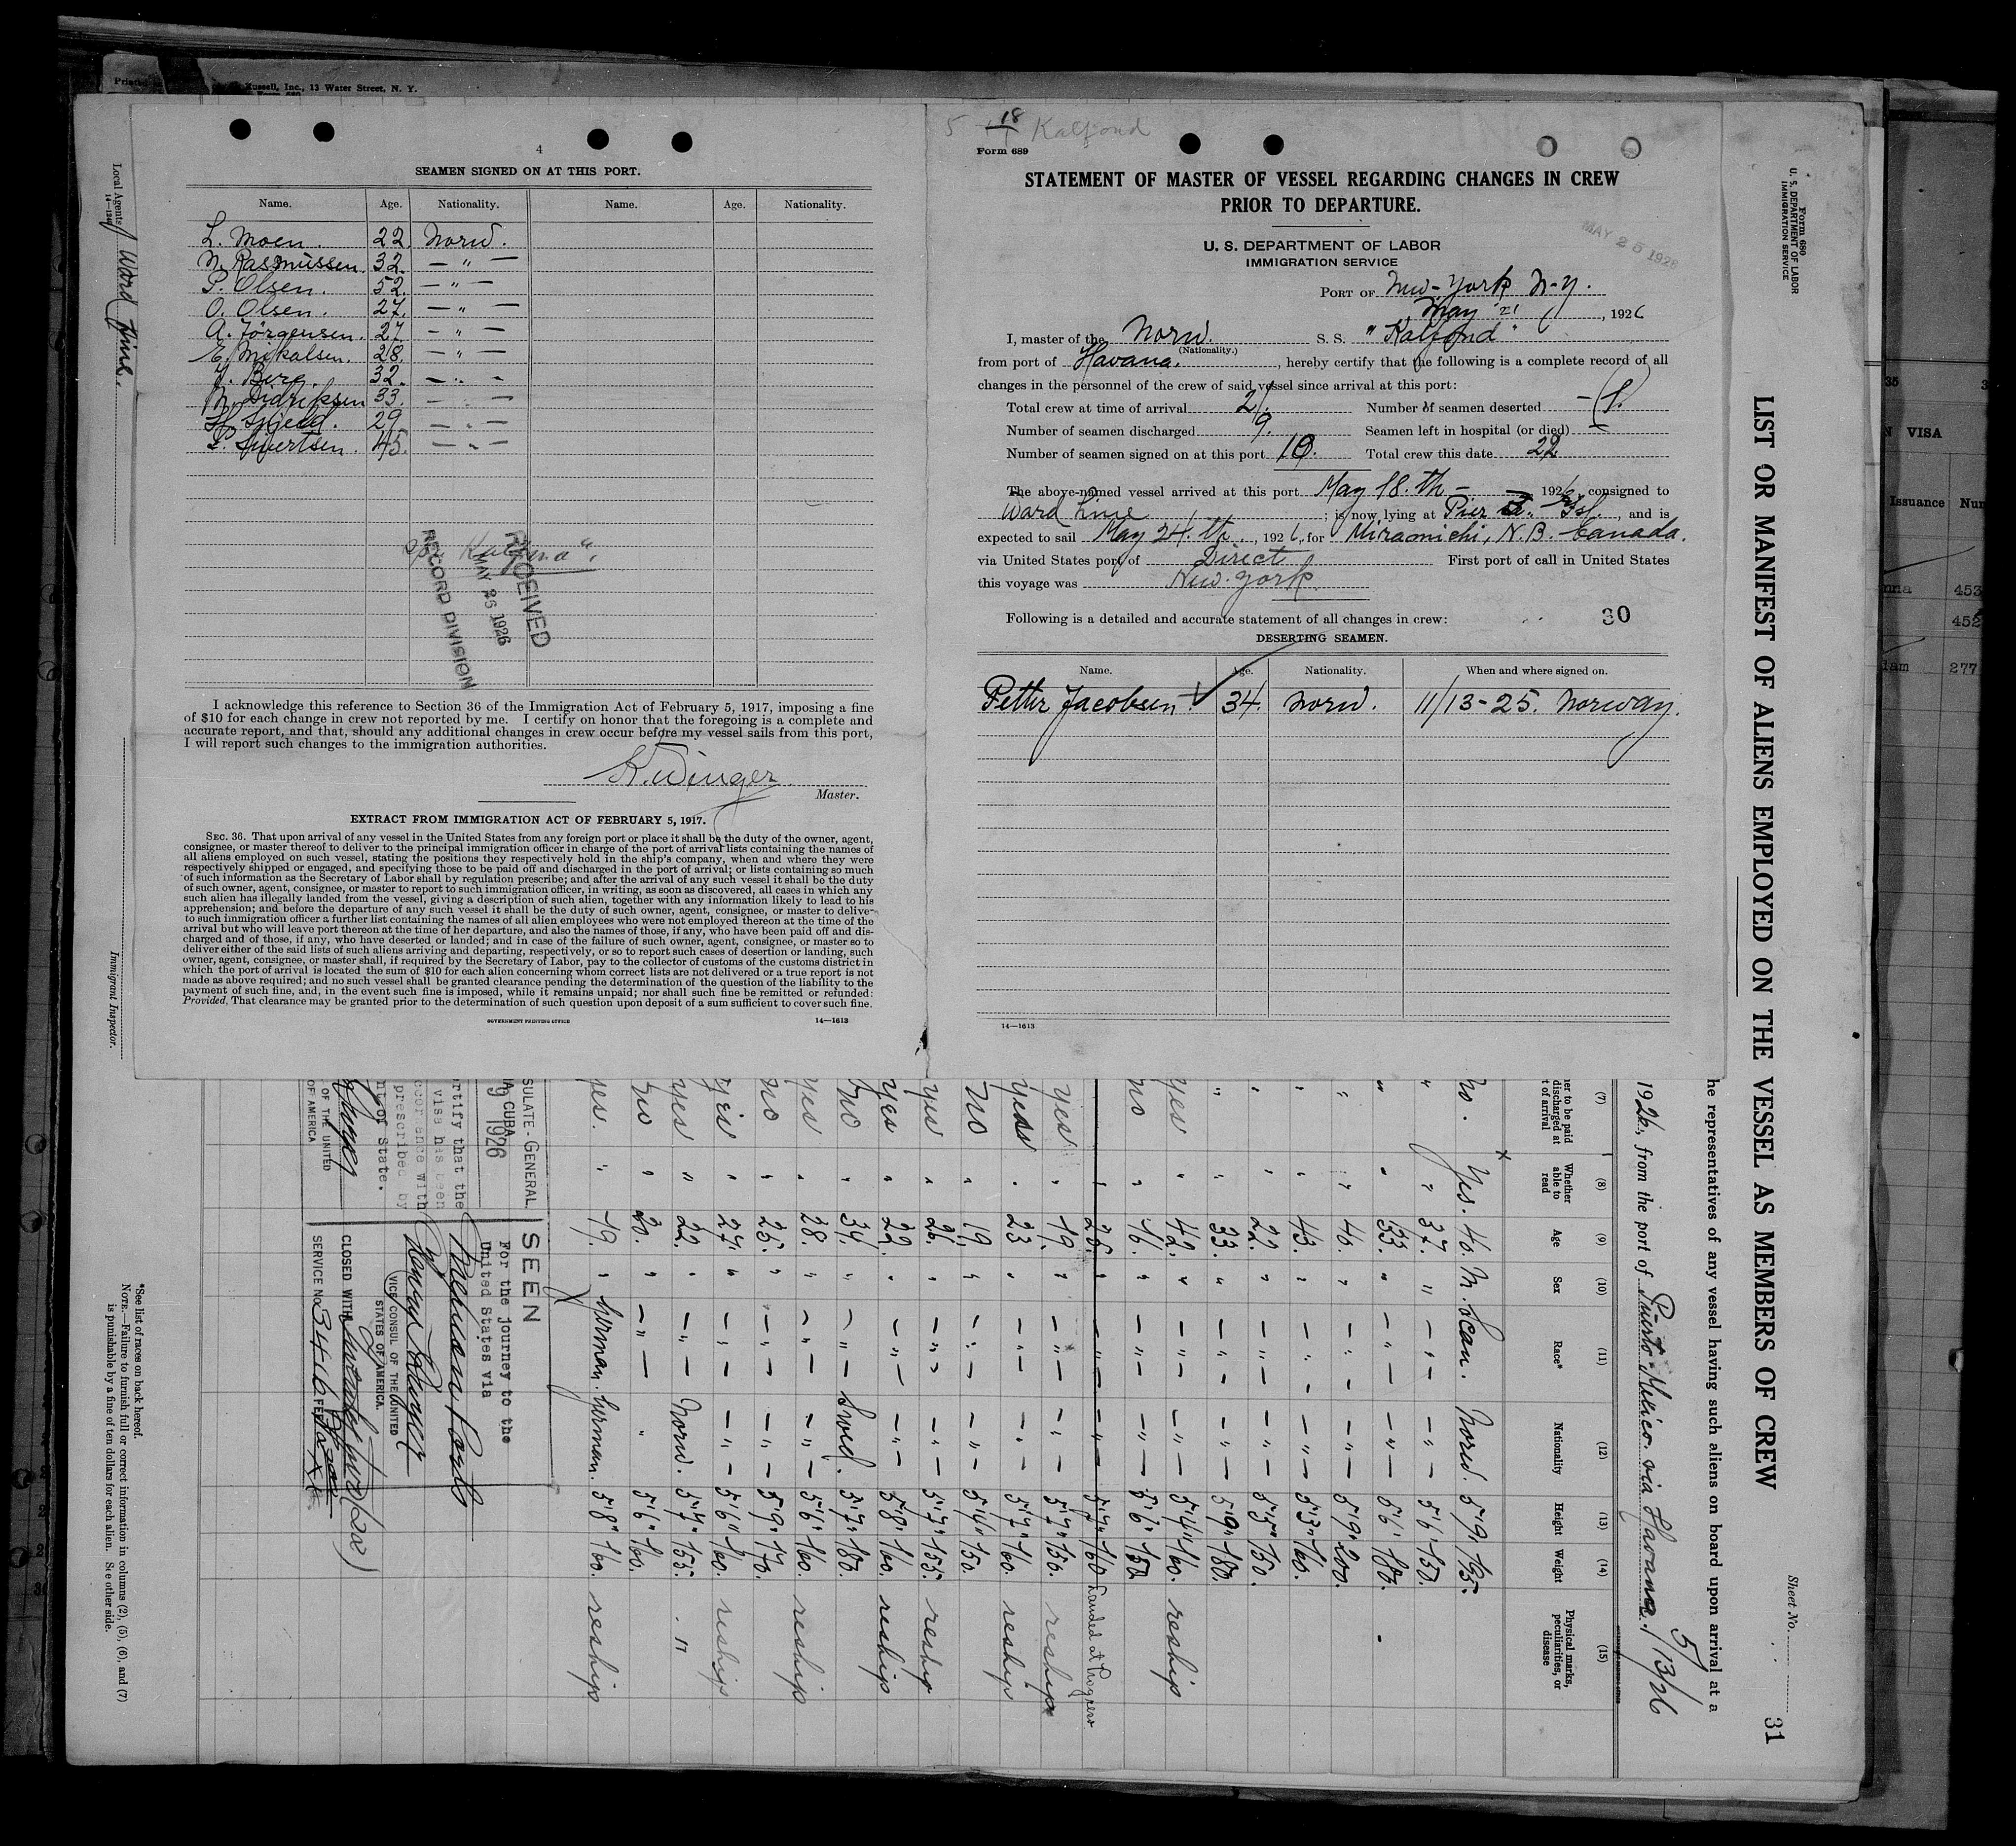 Russell, Inc., 13 Water Street, N. Y.
4
SEAMEN SIGNED ON AT THIS PORT.
Name. Age. Nationality. Name. Age. Nationality.
L. Moen. 22. Norw.
N. Rasmussen. 32. — " —
P. Olsen. 52. — " —
O. Olsen. 27. — " —
A. Jörgensen. 27 — " —
E. Mikalsen. 28. — " —
Berg. 32. — " —
M. Didriksen 33. — " —
29. — " —
45. — " —
RECEIVED
MAY 26 1926
RECORD DIVISION
I acknowledge this reference to Section 36 of the Immigration Act of February 5, 1917, imposing a fine
of $10 for each change in crew not reported by me. I certify on honor that the foregoing is a complete and
accurate report, and that, should any additional changes in crew occur before my vessel sails from this port,
I will report such changes to the immigration authorities.
K. Winger
Master.
EXTRACT FROM IMMIGRATION ACT OF FEBRUARY 5, 1917.
SEC. 36. That upon arrival of any vessel in the United States from any foreign port or place it shall be the duty of the owner, agent,
consignee, or master thereof to deliver to the principal immigration officer in charge of the port of arrival lists containing the names of
all aliens employed on such vessel, stating the positions they respectively hold in the ship's company, when and where they were
respectively shipped or engaged, and specifying those to be paid off and discharged in the port of arrival; or lists containing so much
of such information as the Secretary of Labor shall by regulation prescribe; and after the arrival of any such vessel it shall be the duty
of such owner, agent, consignee, or master to report to such immigration officer, in writing, as soon as discovered, all cases in which any
such alien has illegally landed from the vessel, giving a description of such alien, together with any information likely to lead to his
apprehension; and before the departure of any such vessel it shall be the duty of such owner, agent, consignee, or master to deliver
to such immigration officer a further list containing the names of all alien employees who were not employed thereon at the time of the
arrival but who will leave port thereon at the time of her departure, and also the names of those, if any, who have been paid off and dis-
charged and of those, if any, who have deserted or landed; and in case of the failure of such owner, agent, consignee, or master so to
deliver either of the said lists of such aliens arriving and departing, respectively, or so to report such cases of desertion or landing, such
owner, agent, consignee, or master shall, if required by the Secretary of Labor, pay to the collector of customs of the customs district in
which the port of arrival is located the sum of $10 for each alien concerning whom correct lists are not delivered or a true report is not
made as above required; and no such vessel shall be granted clearance pending the determination of the question of the liability to the
payment of such fine, and, in the event such fine is imposed, while it remains unpaid; nor shall such fine be remitted or refunded:
Provided, That clearance may be granted prior to the determination of such question upon deposit of a sum sufficient to cover such fine.
GOVERNMENT PRINTING OFFICE 14—1613
Local Agents Ward Line.
Immigrant Inspector.
5 18 Kalfond
Form 689
STATEMENT OF MASTER OF VESSEL REGARDING CHANGES IN CREW
PRIOR TO DEPARTURE.
U. S. DEPARTMENT OF LABOR
IMMIGRATION SERVICE
MAY 25 1926
PORT OF New-York N-Y.
May 21, 1926
I, master of the Norw. S. S. "Kalfond"
(Nationality.)
from port of Havana., hereby certify that the following is a complete record of all
changes in the personnel of the crew of said vessel since arrival at this port:
Total crew at time of arrival 21. Number of seamen deserted
Number of seamen discharged 9. Seamen left in hospital (or died)
Number of seamen signed on at this port 10. Total crew this date 22
The above-named vessel arrived at this port May 18. th — 1926, consigned to
Ward Line; is now lying at Pier, and is
expected to sail May 24. th., 1926, for Miramichi, N. B. Canada.
via United States port of Direct First port of call in United States
this voyage was New-York
Following is a detailed and accurate statement of all changes in crew: 30
DESERTING SEAMEN.
Name. Age. Nationality. When and where signed on.
Petter Jacobsen 34. Norw. 11/13-25. Norway.
14—1613
Form 680
U. S. DEPARTMENT OF LABOR
IMMIGRATION SERVICE
Sheet No.
31
LIST OR MANIFEST OF ALIENS EMPLOYED ON THE VESSEL AS MEMBERS OF CREW
he representatives of any vessel having such aliens on board upon arrival at a
1926, from the port of Puerto Mexico via Havana. 5/13/26
(7) (8) (9) (10) (11) (12) (13) (14) (15)
er to be paid discharged at t of arrival
Whether able to read
Age
Sex
Race*
Nationality
Height
Weight
Physical marks, peculiarities, or disease
No. Yes. 40. M. Scan. Norw. 5'9" 195.
" " 37. " — " — — " — 5'6" 150.
" " 33. " — " — — " — 5'6" 180.
" " 40. " — " — — " — 5'9" 200.
" " 43. " — " — — " — 5'3" 160.
" " 22. " — " — — " — 5'5" 150.
" " 33. " — " — — " — 5'9" 180.
yes " 42. " — " — — " — 5'4" 160. reship
no " 46. " — " — — " — 5'6" 150
" 26. " — " — — " — 5'7" 160 Landed at Progreso
yes " 19. " — " — — " — 5'7" 150. reship
yes " 23 " — " — — " — 5'7" 160. reship
no " 19. " — " — — " — 5'4" 150.
yes " 26. " — " — — " — 5'7" 155. reship
yes " 22. " — " — — " — 5'8" 160. reship
no " 34. " — " — Swed. 5'7" 180.
yes " 28. " — " — — " — 5'6" 160. reship
no " 25. " — " — — " — 5'9" 170.
yes " 27. " — " — — " — 5'6" 160. reship
yes " 22. " — " — Norw. 5'7" 155. "
no " 20. " — " — " 5'6" 160.
yes. " 19. " German. German. 5'8" 160. reship
SULATE-GENERAL
CUBA
9 1926
rtify that the
visa has been
ccordance with
prescribed by
nt of State.
OF THE UNITED
OF AMERICA
SEEN
For the journey to the
United States via
Mexican Ports
VICE CONSUL OF THE UNITED
STATES OF AMERICA.
CLOSED WITH
SERVICE No. 3416 FEE
*See list of races on back hereof.
NOTE.—Failure to furnish full or correct information in columns (2), (5), (6), and (7)
is punishable by a fine of ten dollars for each alien. See other side.
VISA
Issuance
453
452
277